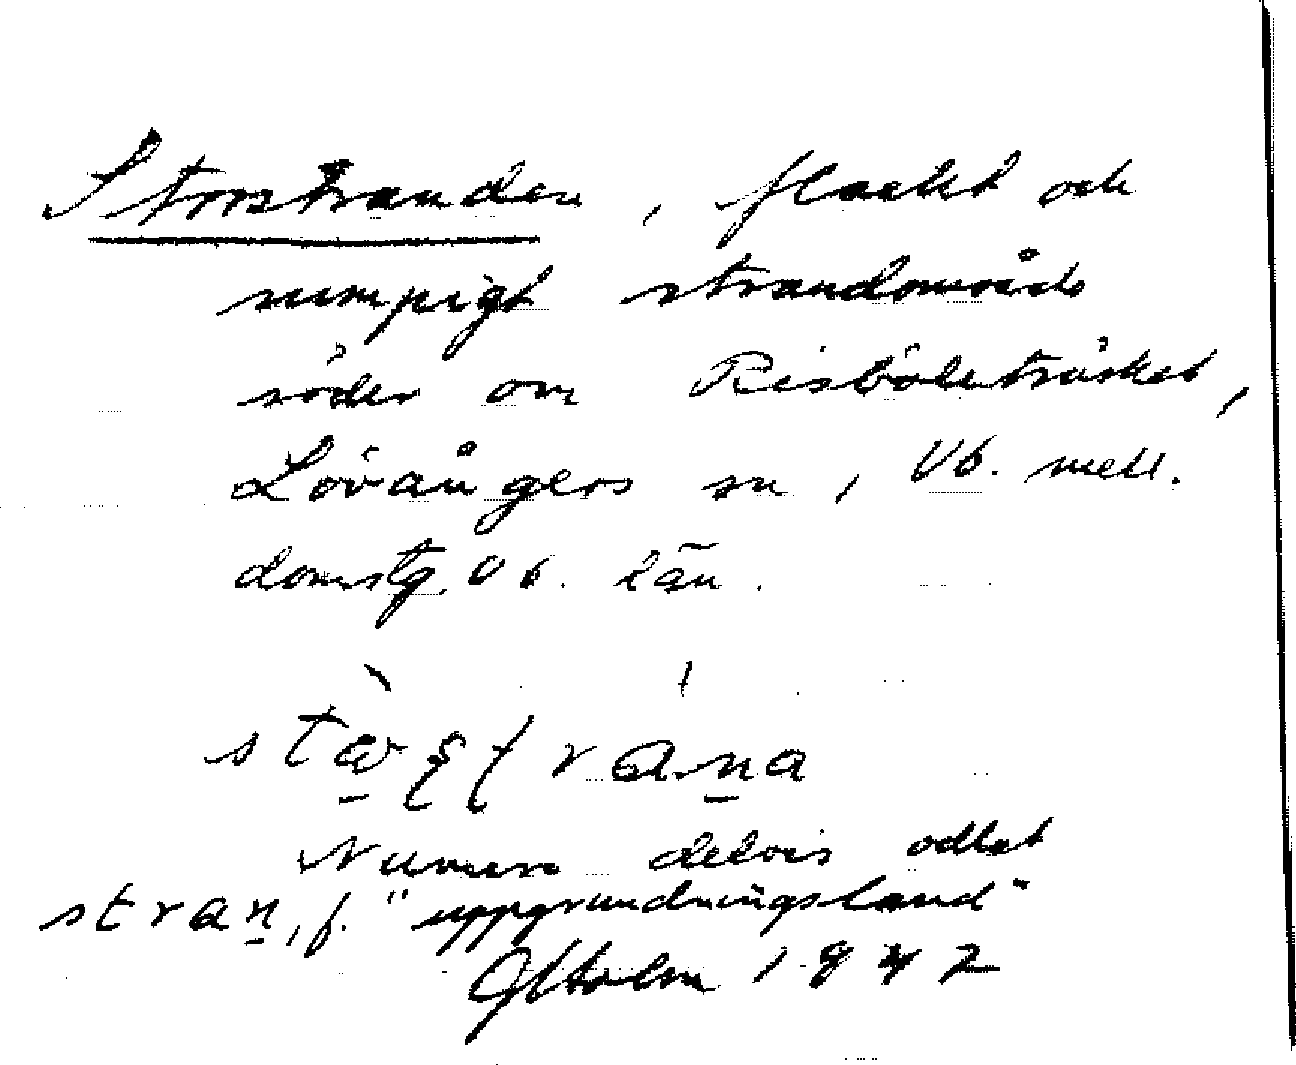 Storstranden, flackt och
sumpigt strandområde
söder om Risböleträsket,
Lövångers sn, Vb. mell.
domstg. Vb. län.
Numera delvis odlat
stran, f. "uppgrundningsland"
GHolm 1942